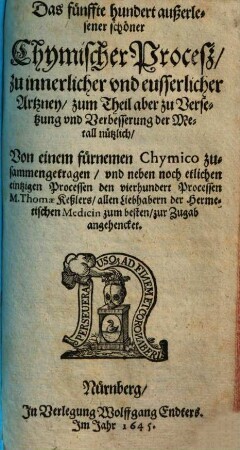 Das fünffte hundert außerle-
sener schöner
Chymischer Process/
zu innerlicher vnd eusserlicher
Artzney / zum Theil aber zu Verse-
tzung vnd Verbesserung der Me-
tall nützlich/
Von einem fürnemen Chymico zu-
sammengetragen / vnd neben noch etlichen
eintzigen Processen den vierhundert Processen
M. Thomæ Keßlers / allen Liebhabern der Herme-
tischen Medicin zum besten / zur Zugab
angehencket.
PERSEVERA USQ; AD FINEM ET CORONABERIS
Nürnberg/
In Verlegung Wolffgang Endters.
Im Jahr 1645.